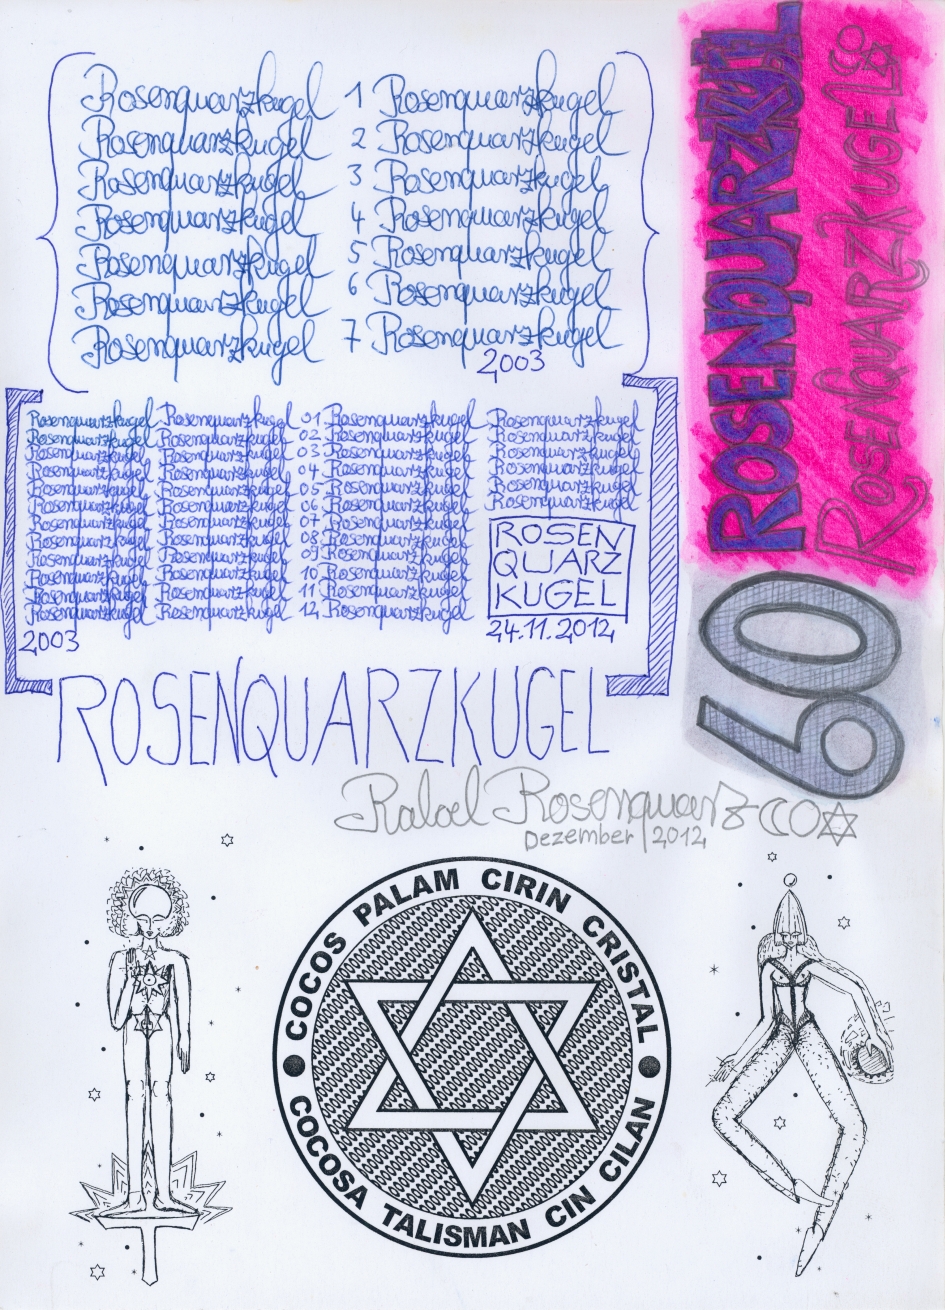 Rosenquarzkugel 1 Rosenquarzkugel
Rosenquarzkugel 2 Rosenquarzkugel
Rosenquarzkugel 3 Rosenquarzkugel
Rosenquarzkugel 4 Rosenquarzkugel
Rosenquarzkugel 5 Rosenquarzkugel
Rosenquarzkugel 6 Rosenquarzkugel
Rosenquarzkugel 7 Rosenquarzkugel
2003
Rosenquarzkugel Rosenquarzkugel 01 Rosenquarzkugel Rosenquarzkugel
Rosenquarzkugel Rosenquarzkugel 02 Rosenquarzkugel Rosenquarzkugel
Rosenquarzkugel Rosenquarzkugel 03 Rosenquarzkugel Rosenquarzkugel
Rosenquarzkugel Rosenquarzkugel 04 Rosenquarzkugel Rosenquarzkugel
Rosenquarzkugel Rosenquarzkugel 05 Rosenquarzkugel Rosenquarzkugel
Rosenquarzkugel Rosenquarzkugel 06 Rosenquarzkugel Rosenquarzkugel
Rosenquarzkugel Rosenquarzkugel 07 Rosenquarzkugel
Rosenquarzkugel Rosenquarzkugel 08 Rosenquarzkugel
Rosenquarzkugel Rosenquarzkugel 09 Rosenquarzkugel
Rosenquarzkugel Rosenquarzkugel 10 Rosenquarzkugel
Rosenquarzkugel Rosenquarzkugel 11 Rosenquarzkugel
Rosenquarzkugel Rosenquarzkugel 12 Rosenquarzkugel
ROSEN
QUARZ
KUGEL
24.11.2012
2003
ROSENQUARZKUGEL
Rafael Rosenquarz
Dezember/2012
60
ROSENQUARZKUGEL
ROSENQUARZKUGEL
COCOS PALAM CIRIN CRISTAL
COCOSA TALISMAN CIN CILAN